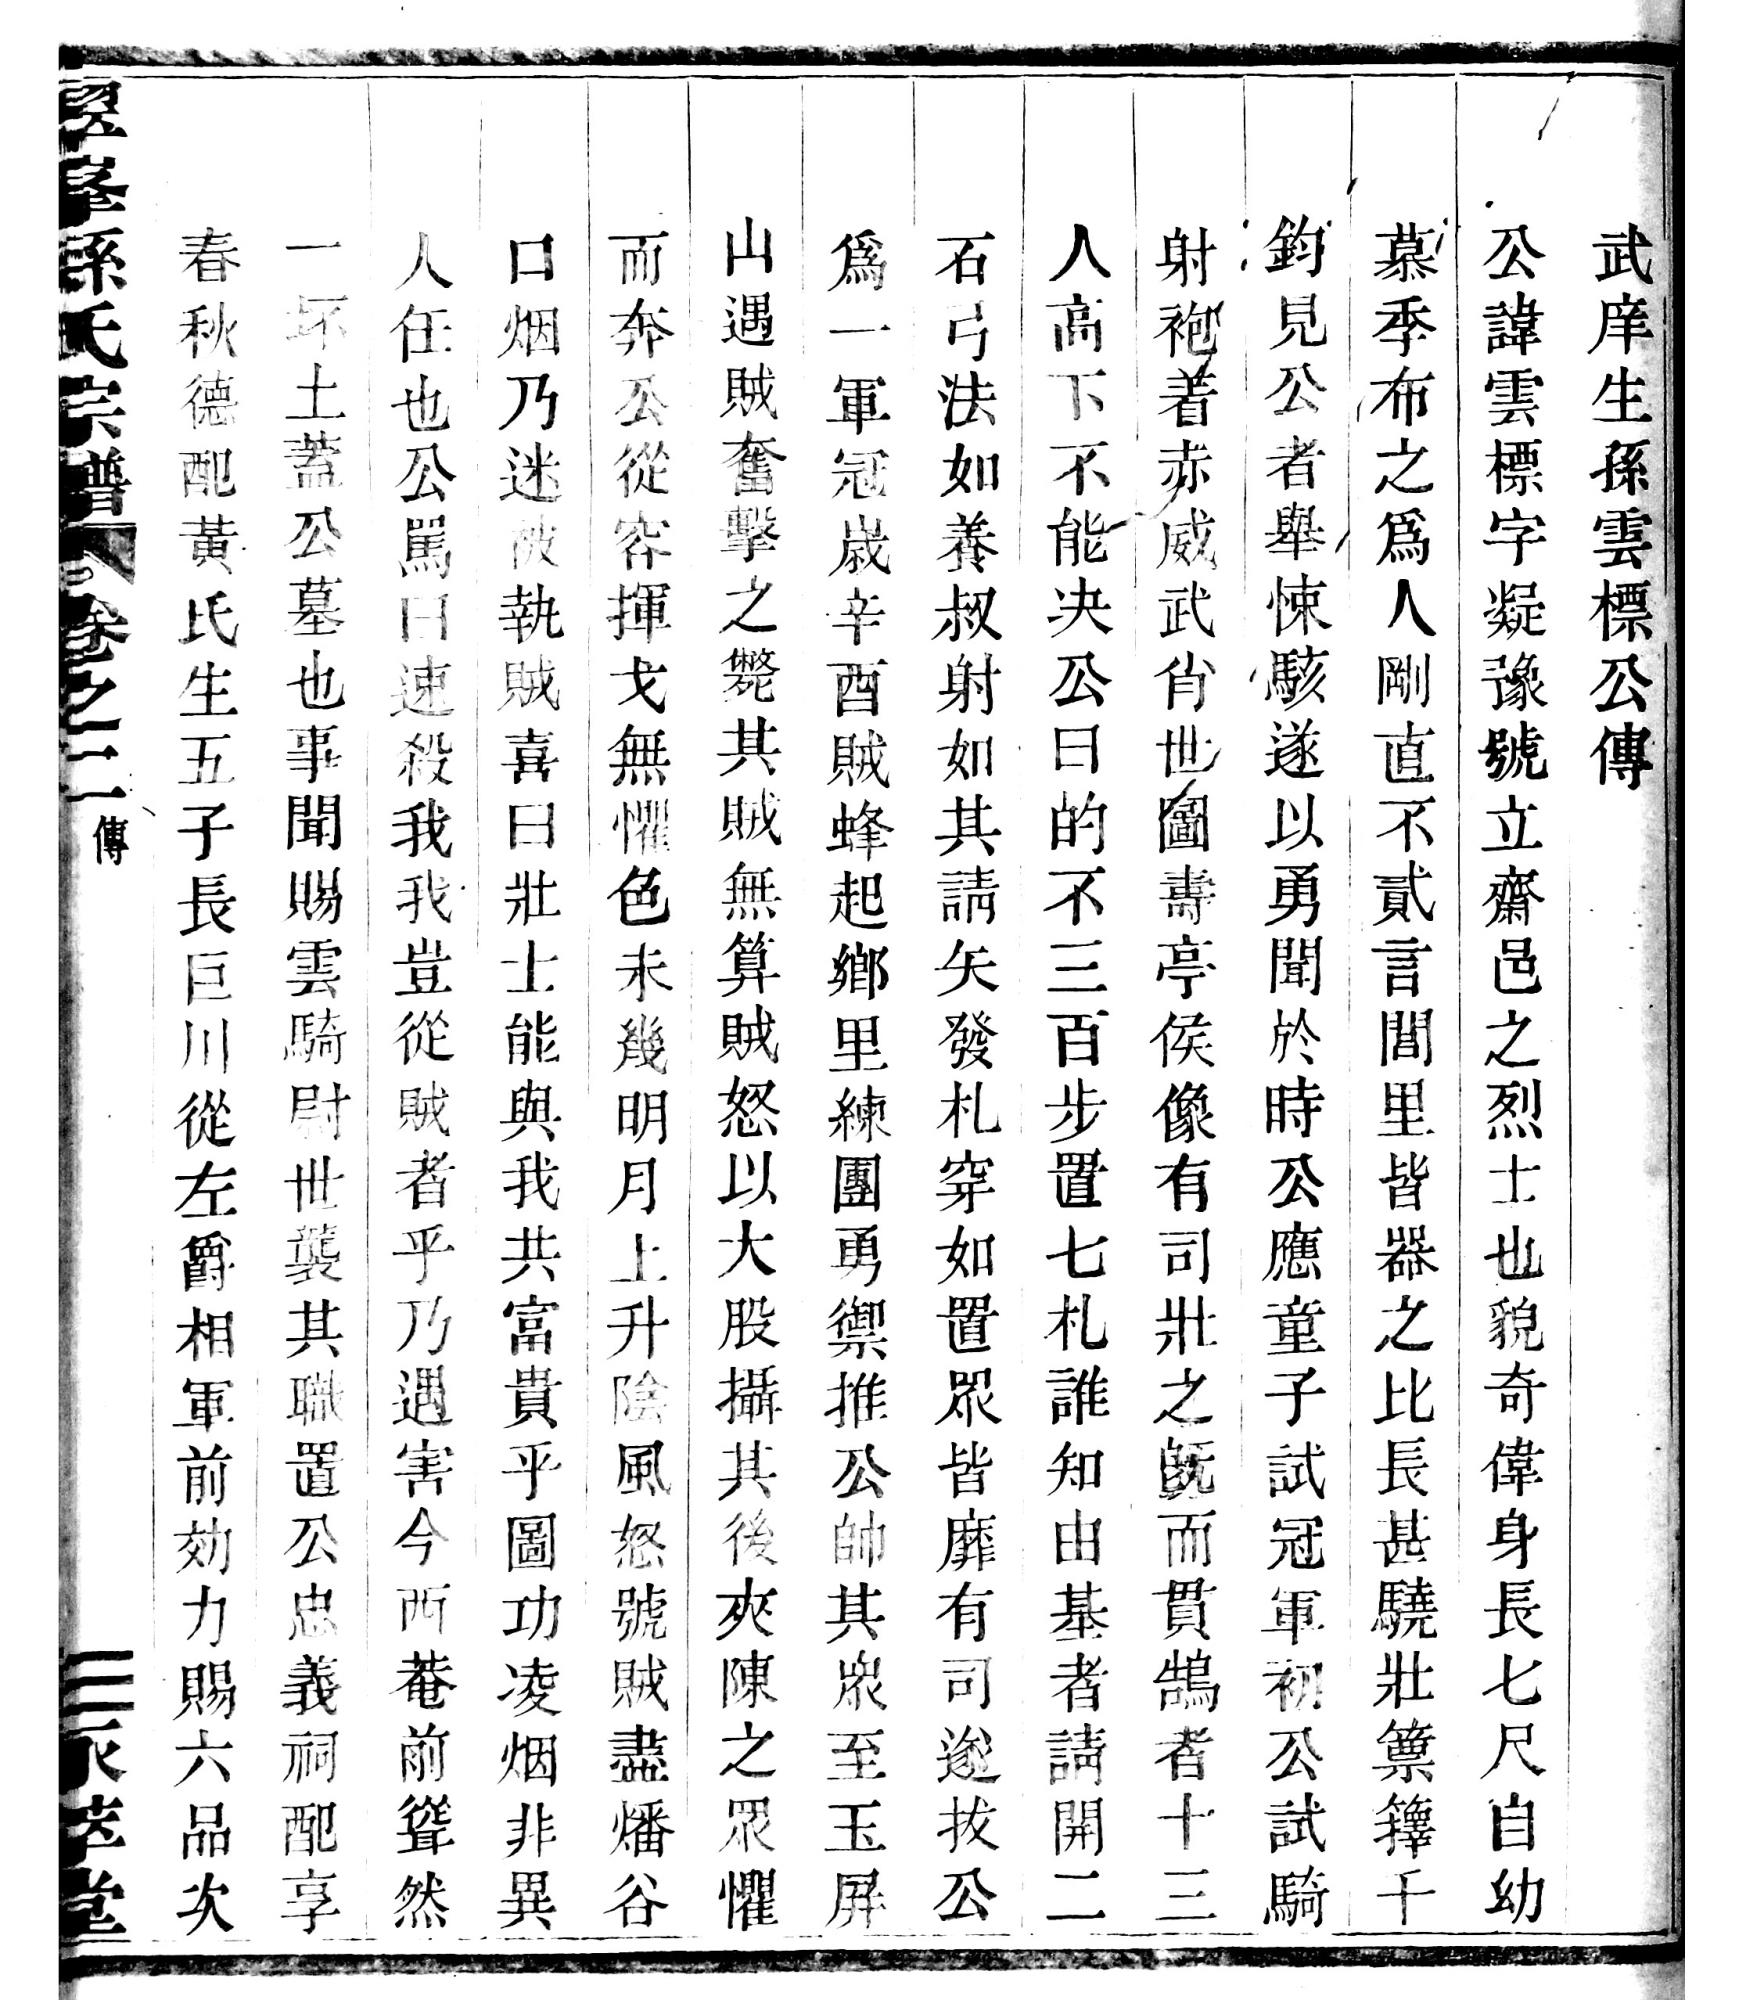 武庠生孫雲標公傳
公諱雲標字凝豫號立齋邑之烈士也貌奇偉身長七尺自幼
慕季布之爲人剛直不貳言閭里皆器之比長甚驍壯籥籜千
鈞見公者舉悚駭遂以勇聞於時公應童子試冠軍初公試騎
射袍着赤威武肖世圖壽亭侯像有司壯之既而貫鵠者十三
人高下不能决公曰的不三百步置七札誰知由基者請開二
石弓法如養叔射如其請矢發札穿如置眾皆靡有司遂拔公
爲一軍冠歲辛酉賊蜂起鄉里練團勇禦推公帥其衆至玉屏
山遇賊奮擊之斃其賊無算賊怒以大股攝其後夾陳之眾懼
而奔公從容揮戈無懼色未幾明月上升陰風怒號賊盡燔谷
口烟乃迷被執賊喜曰壯士能與我共富貴乎圖功凌烟非異
人任也公罵曰速殺我我豈從賊者乎乃遇害今西菴前聳然
一抔土蓋公墓也事聞賜雲騎尉世襲其職置公忠義祠配享
春秋德配黃氏生五子長巨川從左爵相軍前効力賜六品次
峯孫氏宗譜 卷之二 傳 三 永萃堂